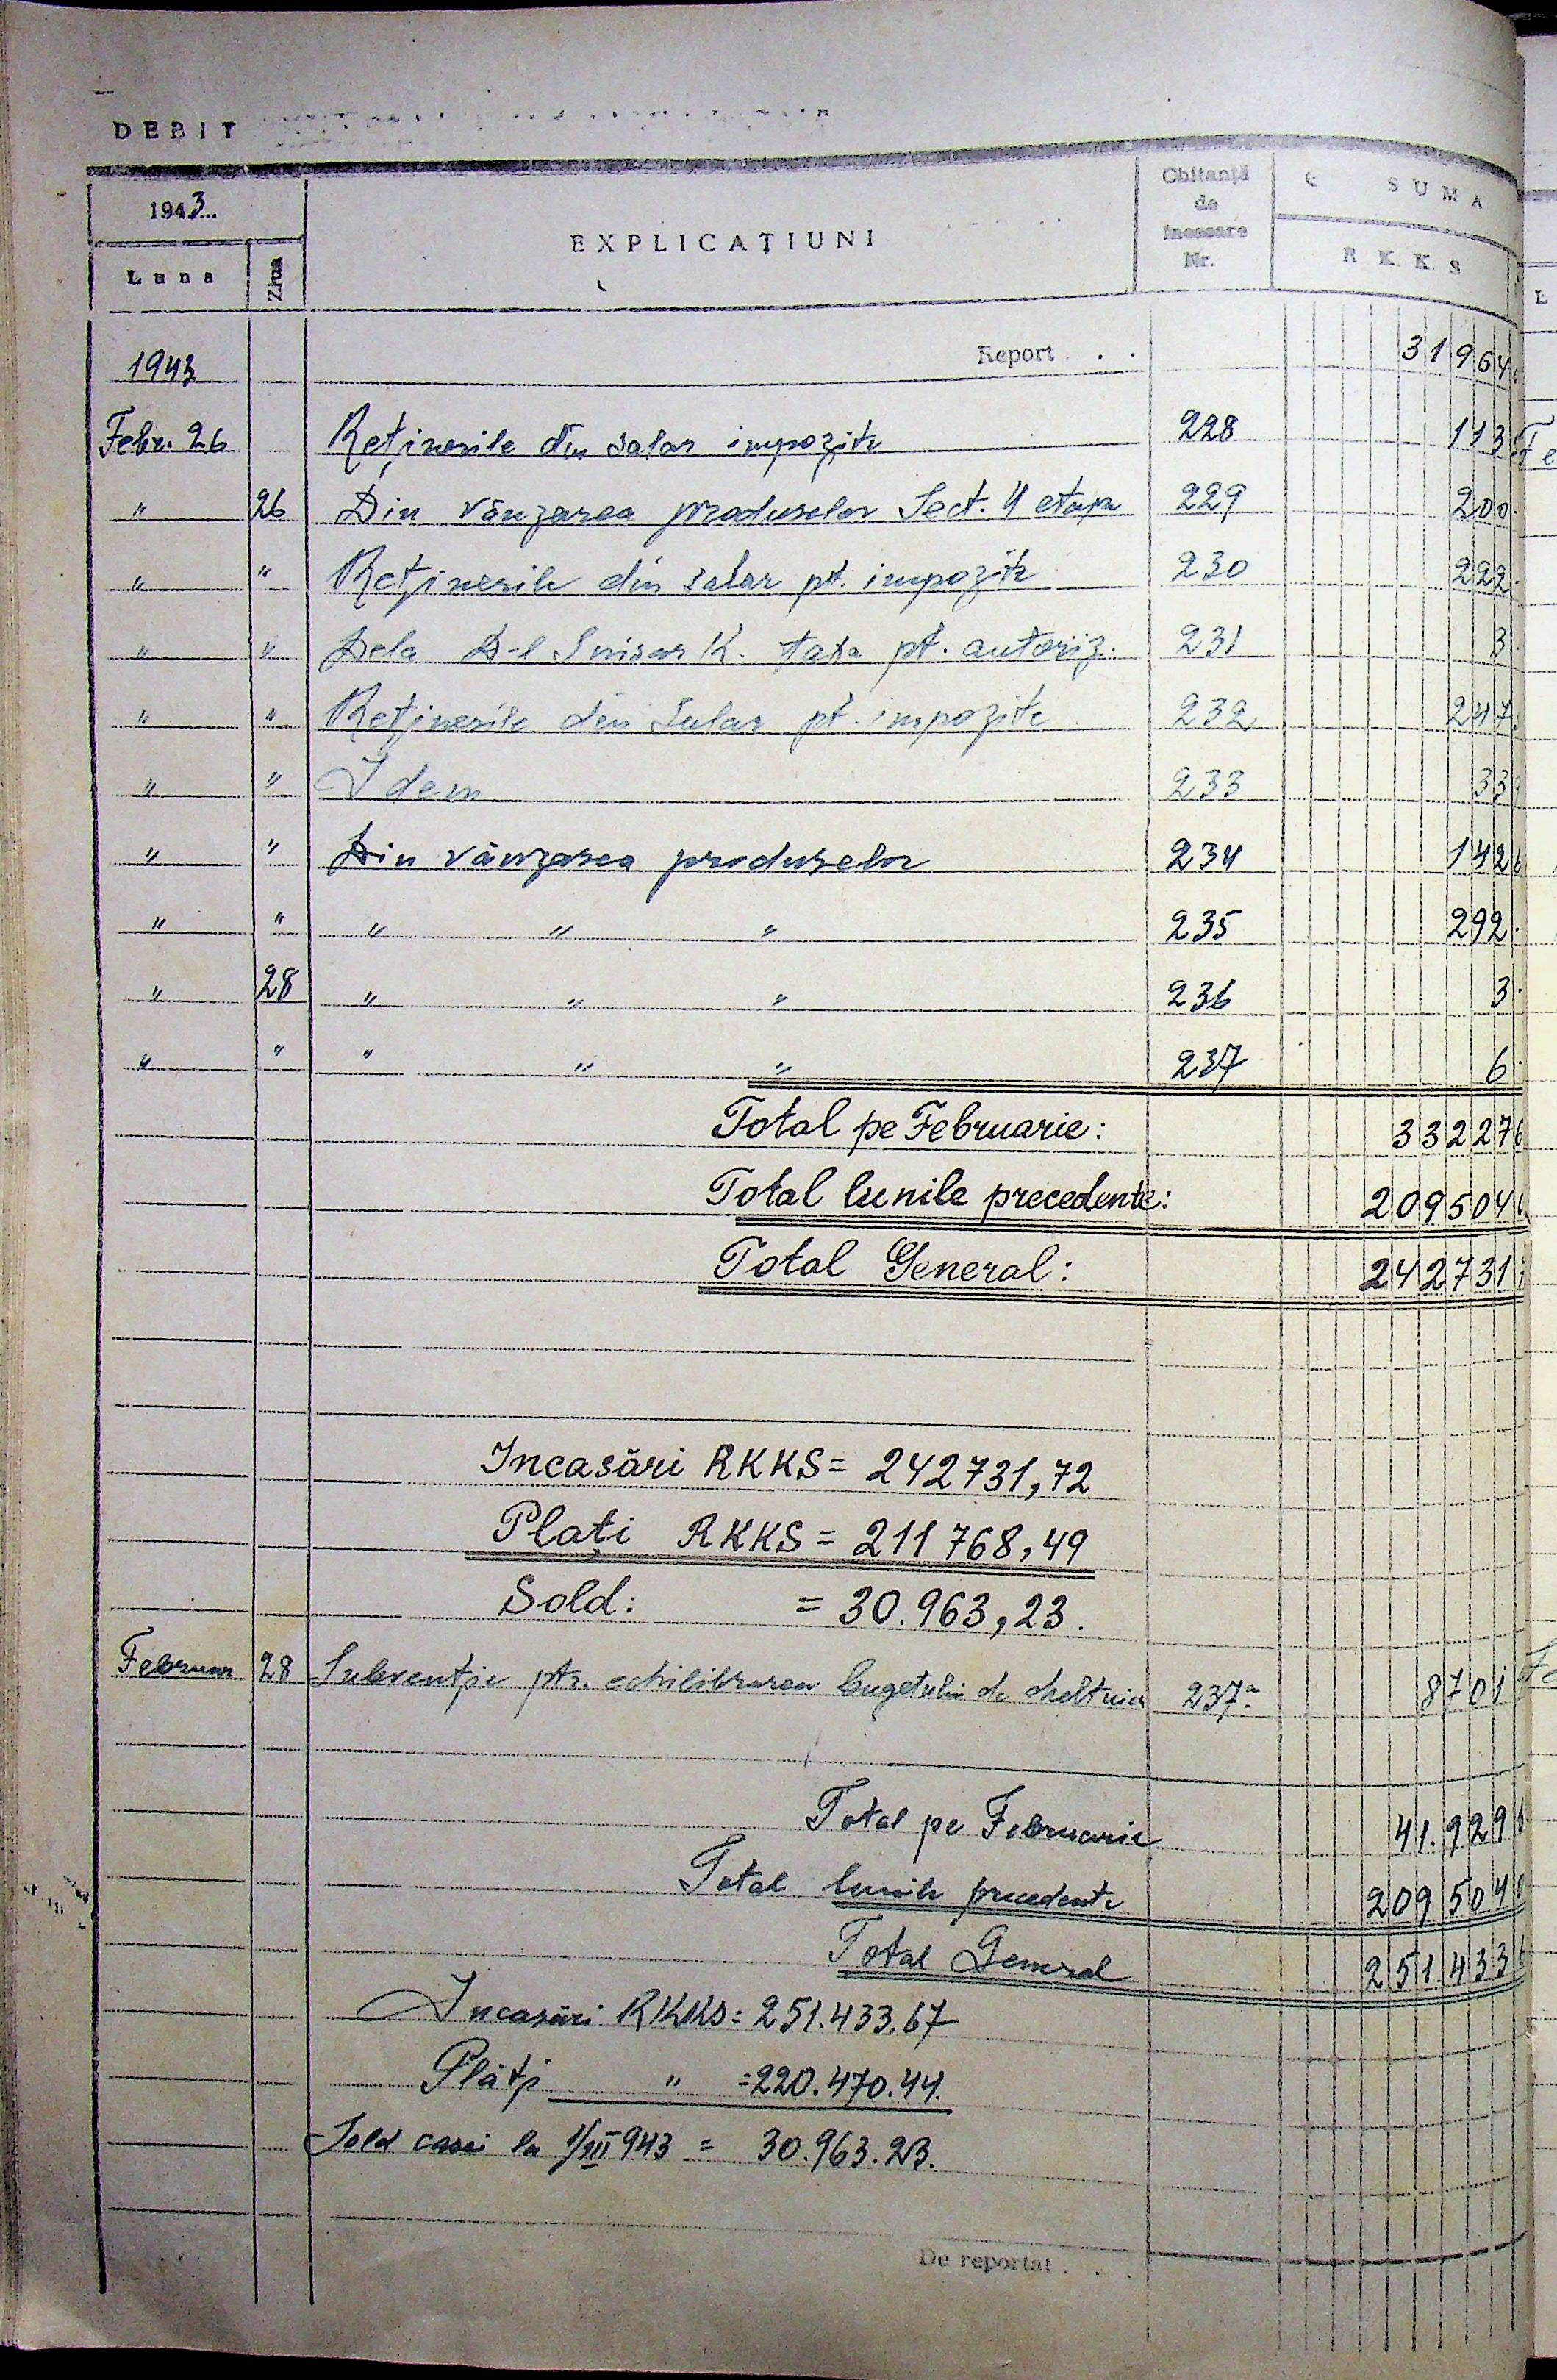 DEBIT
1943... EXPLICAȚIUNI Chitanță de incasare Nr. SUMA
Luna Ziua R K K S
1943 Report . . 31964
Febr. 26 Reținerile din salar impozite 228 113
" 26 Din vânzarea produselor Sect. 4 etapa 229 200
" " Reținerile din salar pt. impozite 230 222
" " Dela D-l K. taxa pt. autoriz. 231 3
" " Reținerile din Salar pt. impozite 232 247
" " Idem 233 33
" " Din vânzarea produselor 234 142
" " " " " 235 292
" 28 " " " 236 3
" " " " " 237 6
Total pe Februarie: 33227
Total lunile precedente: 209504
Total General: 242731
Incasări RKKS = 242731,72
Plați RKKS = 211768,49
Sold: = 30.963,23.
Februar 28 Subvenție ptr. echilibrarea bugetului de cheltuieli 237a 8701
Total pe Februarie 41.929
Total lunile precedente 209504
Total General 251.433
Incasări RKKS = 251.433,67
Plăți " = 220.470.44.
Sold casei la 1/III 943 = 30.963.23.
De reportat . . .